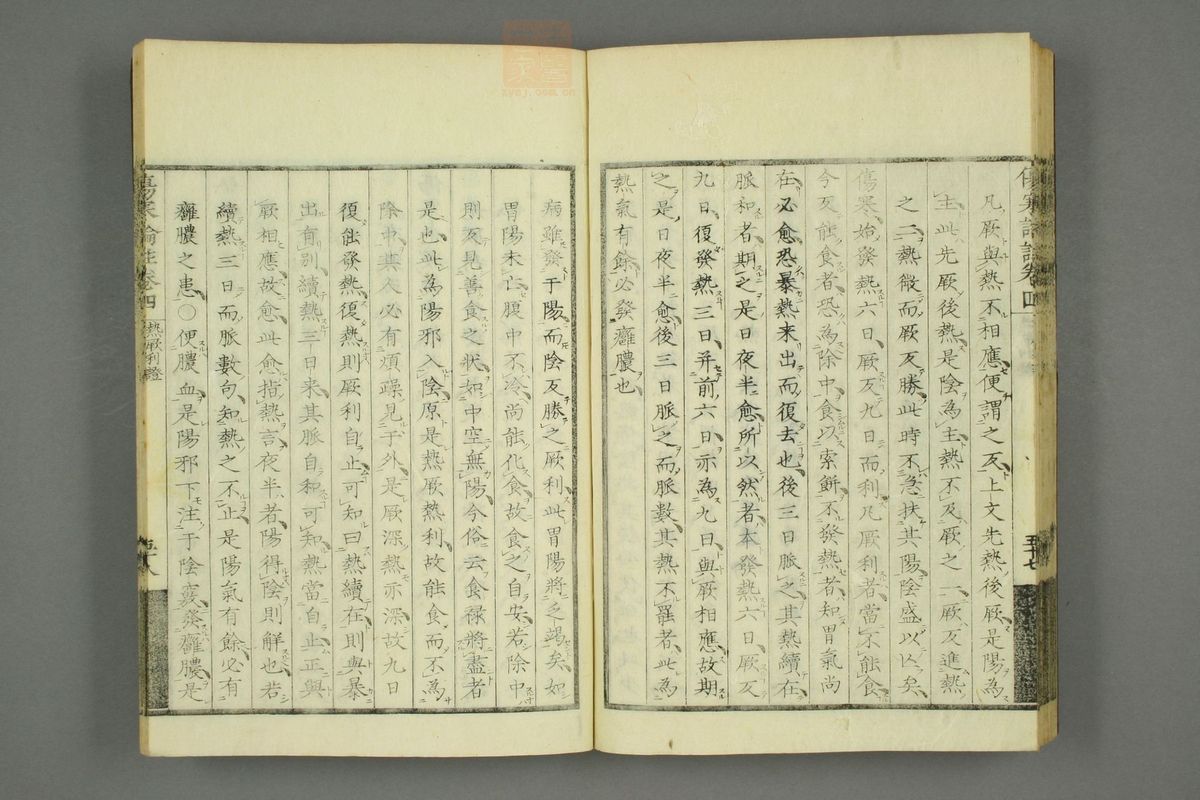 凡厥與熱不相應便謂之反上文先熱後厥是陽為
主此先厥後熱是陰為主熱不及厥之一厥反進熱
之二熱微而厥反勝此時不急扶其陽陰盛以亡矣
傷寒始發熱六日厥反九日而利凡厥利者當不能食
今反能食者恐為除中食以索餅不發熱者知胃氣尚
在必愈恐暴熱来出而復去也後三日脈之其熱續在
脈和者期之是日夜半愈所以然者本發熱六日厥反
九日復發熱三日并前六日亦為九日與厥相應故期
之是日夜半愈後三日脈之而脈數其熱不罷者此為
熱氣有餘必發癰膿也
傷寒論註卷四
熱厥利證
五十八
病雖發于陽而陰反勝之厥利此胃陽將乏竭矣如
胃陽未亡腹中不冷尚能化食故食之自安若除中
則反見善食之狀如中空無陽今俗云食祿將盡者
是也此為陽邪入陰原是熱厥熱利故能食而不為
除中其人必有煩躁見于外是厥深熱亦深故九日
復能發熱復熱則厥利自止可知曰熱續在則與暴
出有別續熱三日来其脈自和可知熱當自止正與
厥相應故愈此愈指熱言夜半者陽得陰則解也若
續熱三日而脈數句知熱之不止是陽氣有餘必有
癰膿之患○便膿血是陽邪下注于陰竅發癰膿是